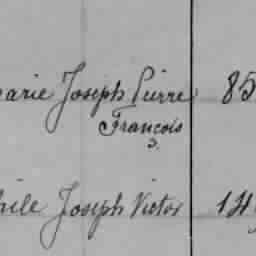 arie Joseph Pierre 85
François
hile Joseph Victor 14